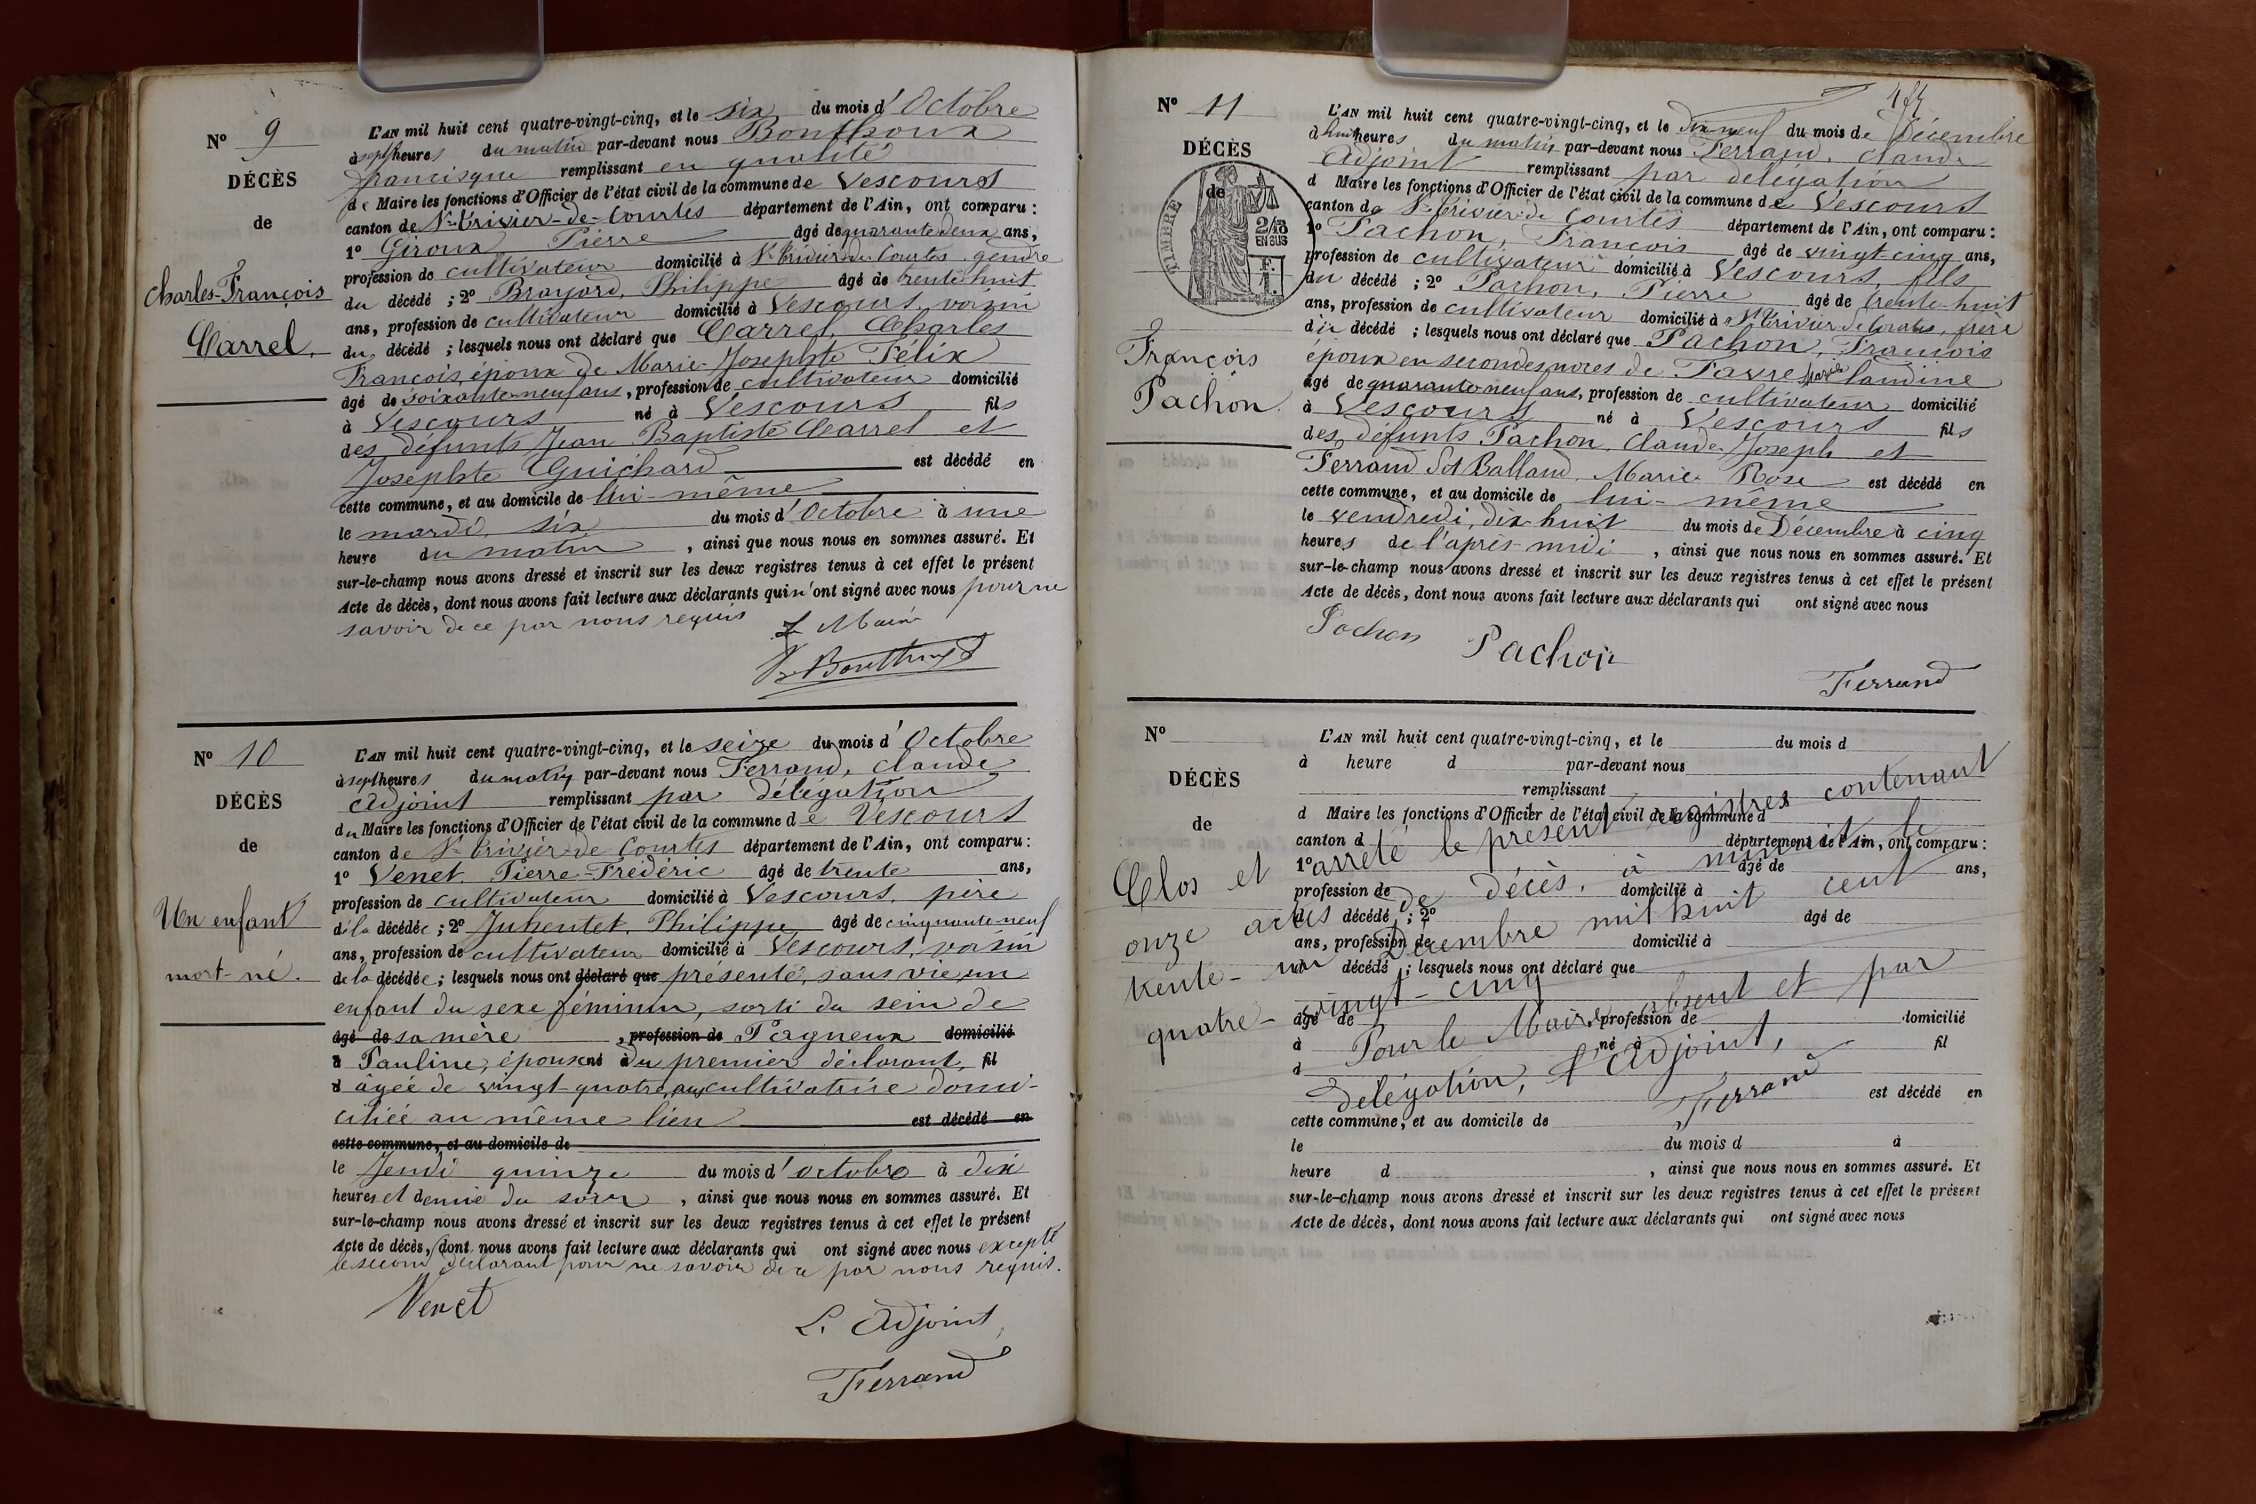 N° 9
DÉCÈS
de
Charles-François
Carrel.
L'AN mil huit cent quatre-vingt-cinq, et le six du mois d'Octobre
à sept heures du matin par-devant nous Bonthoux
francisque remplissant en qualité
de Maire les fonctions d'Officier de l'état civil de la commune de Vescours
canton de St-Trivier-de-Courtes département de l'Ain, ont comparu :
1° Giroux Pierre âgé de quarante deux ans,
profession de cultivateur domicilié à St Trivier de Courtes, gendre
du décédé ; 2° Broyard, Philippe âgé de trente huit
ans, profession de cultivateur domicilié à Vescours, voisin
du décédé ; lesquels nous ont déclaré que Carrel, Charles
François, époux de Marie-Josephte Félix
âgé de soixante-neuf ans, profession de cultivateur domicilié
à Vescours né à Vescours fils
des défunts Jean Baptiste Carrel et
Josephte Guichard est décédé en
cette commune, et au domicile de lui-même
le mardi, six du mois d'Octobre à une
heure du matin , ainsi que nous nous en sommes assuré. Et
sur-le-champ nous avons dressé et inscrit sur les deux registres tenus à cet effet le présent
Acte de décès, dont nous avons fait lecture aux déclarants qui n'ont signé avec nous pour ne
savoir de ce par nous requis
Le Maire
N° 10
DÉCÈS
de
Un enfant
mort-né.
L'AN mil huit cent quatre-vingt-cinq, et le seize du mois d'Octobre
à sept heures du matin par-devant nous Ferrand, Claude
Adjoint remplissant par délégation
du Maire les fonctions d'Officier de l'état civil de la commune de Vescours
canton de St Trivier de Courtes département de l'Ain, ont comparu :
1° Venet, Pierre-Frédéric âgé de trente ans,
profession de cultivateur domicilié à Vescours, père
de la décédée ; 2° Juhentet, Philippe âgé de cinquante-neuf
ans, profession de cultivateur domicilié à Vescours, voisin
de la décédée ; lesquels nous ont déclaré que présenté, sans vie, un
enfant du sexe féminin, sorti du sein de
âgé de sa mère , profession de Pagneux domicilié
à Pauline, épouse né à du premier déclarant, fil
d âgée de vingt-quatre ans cultivatrice domi-
ciliée au même lieu est décédé en
cette commune, et au domicile de
le Jeudi quinze du mois d'octobre à dix
heures et demie du soir , ainsi que nous nous en sommes assuré. Et
sur-le-champ nous avons dressé et inscrit sur les deux registres tenus à cet effet le présent
Acte de décès, dont nous avons fait lecture aux déclarants qui ont signé avec nous excepté
le second déclarant pour ne savoir de ce par nous requis.
Venet
L'Adjoint,
Ferrand
N° 11
DÉCÈS
de
TIMBRE
2/10
EN SUS
François
Pachon.
L'AN mil huit cent quatre-vingt-cinq, et le dix-neuf du mois de Décembre
à huit heures du matin par-devant nous Ferrand, Claude
Adjoint remplissant par délégation
d Maire les fonctions d'Officier de l'état civil de la commune de Vescours
canton de St Trivier de Courtes département de l'Ain, ont comparu :
1° Pachon, François âgé de vingt-cinq ans,
profession de cultivateur domicilié à Vescours, fils
du décédé ; 2° Pachon, Pierre âgé de trente-huit
ans, profession de cultivateur domicilié à St Trivier de Courtes, frère
du décédé ; lesquels nous ont déclaré que Pachon, François
époux en secondes noces de Favre Marie Claudine
âgé de quarante-neuf ans, profession de cultivateur domicilié
à Vescours né à Vescours fils
des défunts Pachon, Claude-Joseph et
Ferrand dit Balland, Marie Rose est décédé en
cette commune, et au domicile de lui-même
le vendredi, dix-huit du mois de Décembre à cinq
heures de l'après-midi , ainsi que nous nous en sommes assuré. Et
sur-le-champ nous avons dressé et inscrit sur les deux registres tenus à cet effet le présent
Acte de décès, dont nous avons fait lecture aux déclarants qui ont signé avec nous
Pachon Pachon
Ferrand
N°
DÉCÈS
de
L'AN mil huit cent quatre-vingt-cinq, et le du mois d
à heure d par-devant nous
remplissant
d Maire les fonctions d'Officier de l'état civil de la commune d
canton d département de l'Ain, ont comparu :
1° âgé de ans,
profession de domicilié à
d décédé ; 2° âgé de
ans, profession de domicilié à
d décédé ; lesquels nous ont déclaré que
âgé de , profession de domicilié
à né à fil
d
est décédé en
cette commune, et au domicile de
le du mois d à
heure d , ainsi que nous nous en sommes assuré. Et
sur-le-champ nous avons dressé et inscrit sur les deux registres tenus à cet effet le présent
Acte de décès, dont nous avons fait lecture aux déclarants qui ont signé avec nous
Clos et arrêté le présent registres contenant
onze actes de décès, à minuit le
trente-un Décembre mil huit cent
quatre-vingt-cinq
Pour le Maire absent et par
délégation, l'Adjoint,
Ferrand